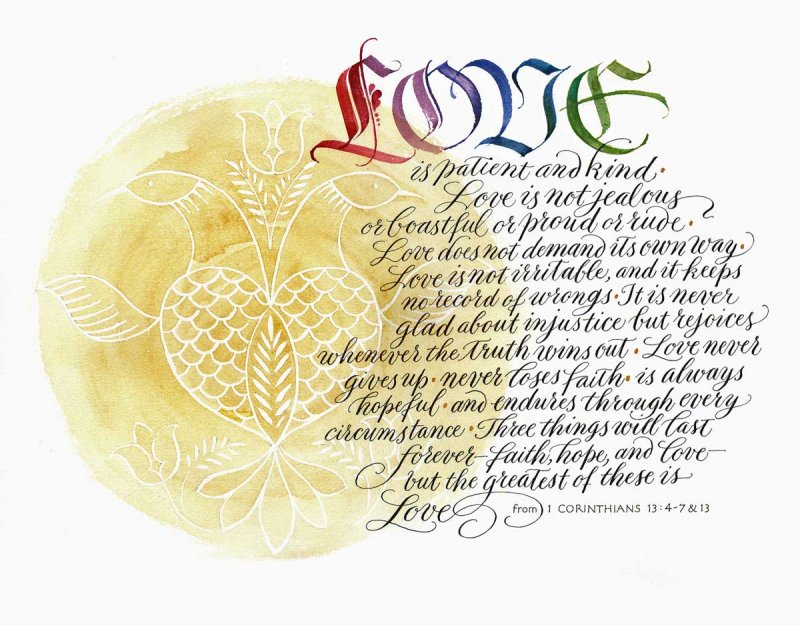 LOVE
is patient and kind •
Love is not jealous
or boastful or proud or rude •
Love does not demand its own way •
Love is not irritable, and it keeps
no record of wrongs • It is never
glad about injustice but rejoices
whenever the truth wins out • Love never
gives up • never loses faith • is always
hopeful • and endures through every
circumstance • Three things will last
forever—faith, hope, and love—
but the greatest of these is
Love from 1 CORINTHIANS 13:4-7 & 13